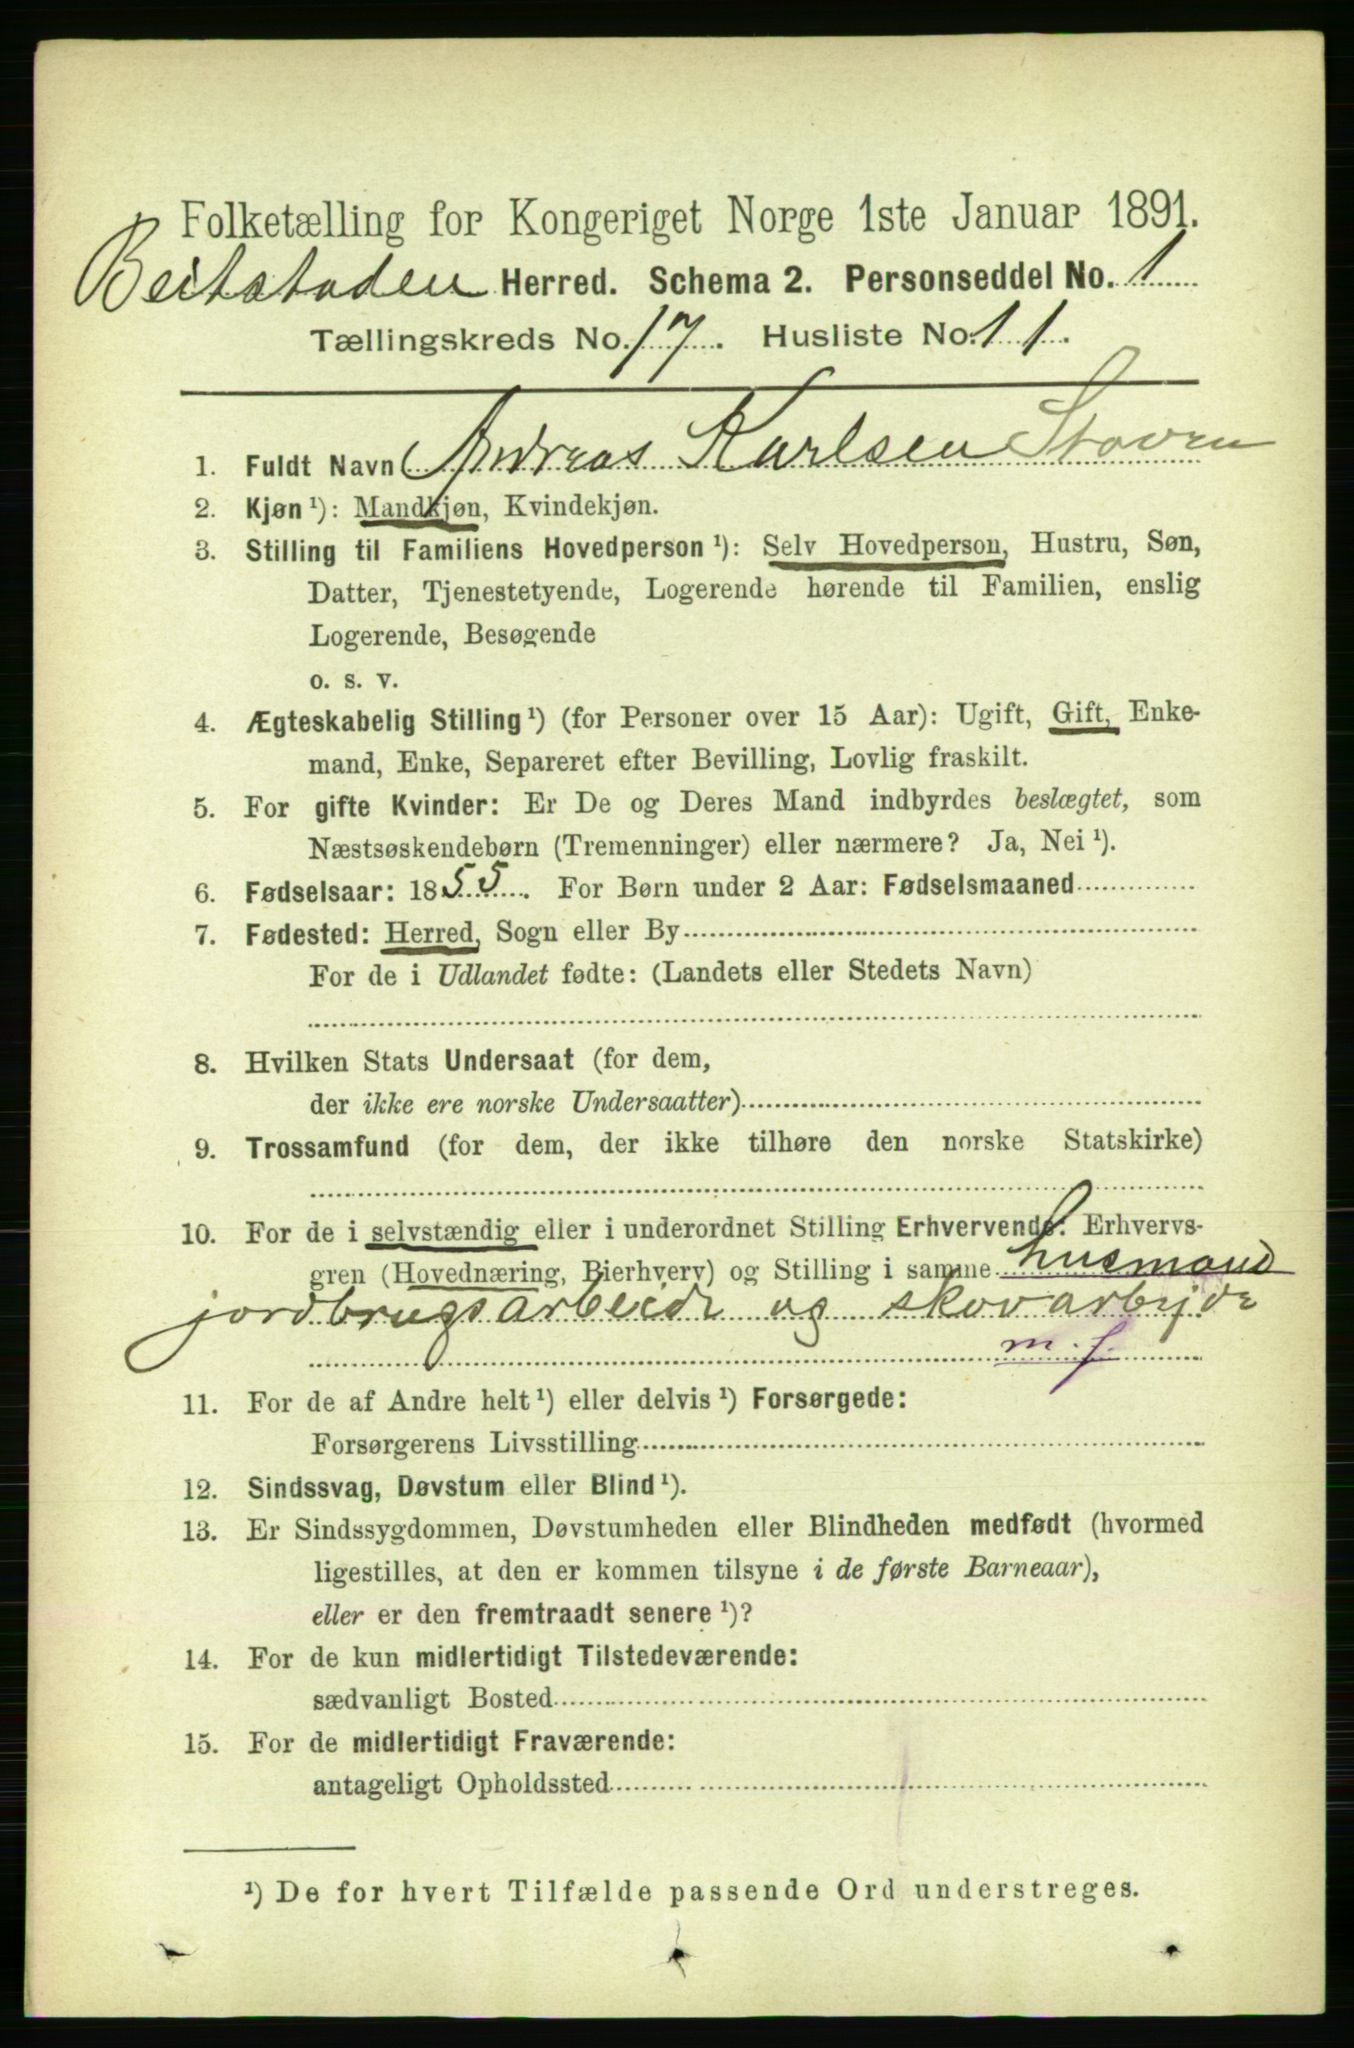 Folketælling for Kongeriget Norge 1ste Januar 1891.
Beitstaden Herred. Schema 2. Personseddel No. 1
Tællingskreds No. 17. Husliste No. 11.
1. Fuldt Navn Andreas Karlsen Staven
2. Kjøn ¹): Mandkjøn, Kvindekjøn.
3. Stilling til Familiens Hovedperson ¹): Selv Hovedperson, Hustru, Søn,
Datter, Tjenestetyende, Logerende hørende til Familien, enslig
Logerende, Besøgende
o. s. v.
4. Ægteskabelig Stilling ¹) (for Personer over 15 Aar): Ugift, Gift, Enke-
mand, Enke, Separeret efter Bevilling, Lovlig fraskilt.
5. For gifte Kvinder: Er De og Deres Mand indbyrdes beslægtet, som
Næstsøskendebørn (Tremenninger) eller nærmere? Ja, Nei ¹).
6. Fødselsaar: 1855. For Børn under 2 Aar: Fødselsmaaned
7. Fødested: Herred, Sogn eller By
For de i Udlandet fødte: (Landets eller Stedets Navn)
8. Hvilken Stats Undersaat (for dem,
der ikke ere norske Undersaatter)
9. Trossamfund (for dem, der ikke tilhøre den norske Statskirke)
10. For de i selvstændig eller i underordnet Stilling Erhvervende: Erhvervs-
gren (Hovednæring, Bierhverv) og Stilling i samme husmand
jordbrugsarbeide og skovarbejde
m. f.
11. For de af Andre helt ¹) eller delvis ¹) Forsørgede:
Forsørgerens Livsstilling
12. Sindssvag, Døvstum eller Blind ¹).
13. Er Sindssygdommen, Døvstumheden eller Blindheden medfødt (hvormed
ligestilles, at den er kommen tilsyne i de første Barneaar),
eller er den fremtraadt senere ¹)?
14. For de kun midlertidigt Tilstedeværende:
sædvanligt Bosted
15. For de midlertidigt Fraværende:
antageligt Opholdssted
¹) De for hvert Tilfælde passende Ord understreges.